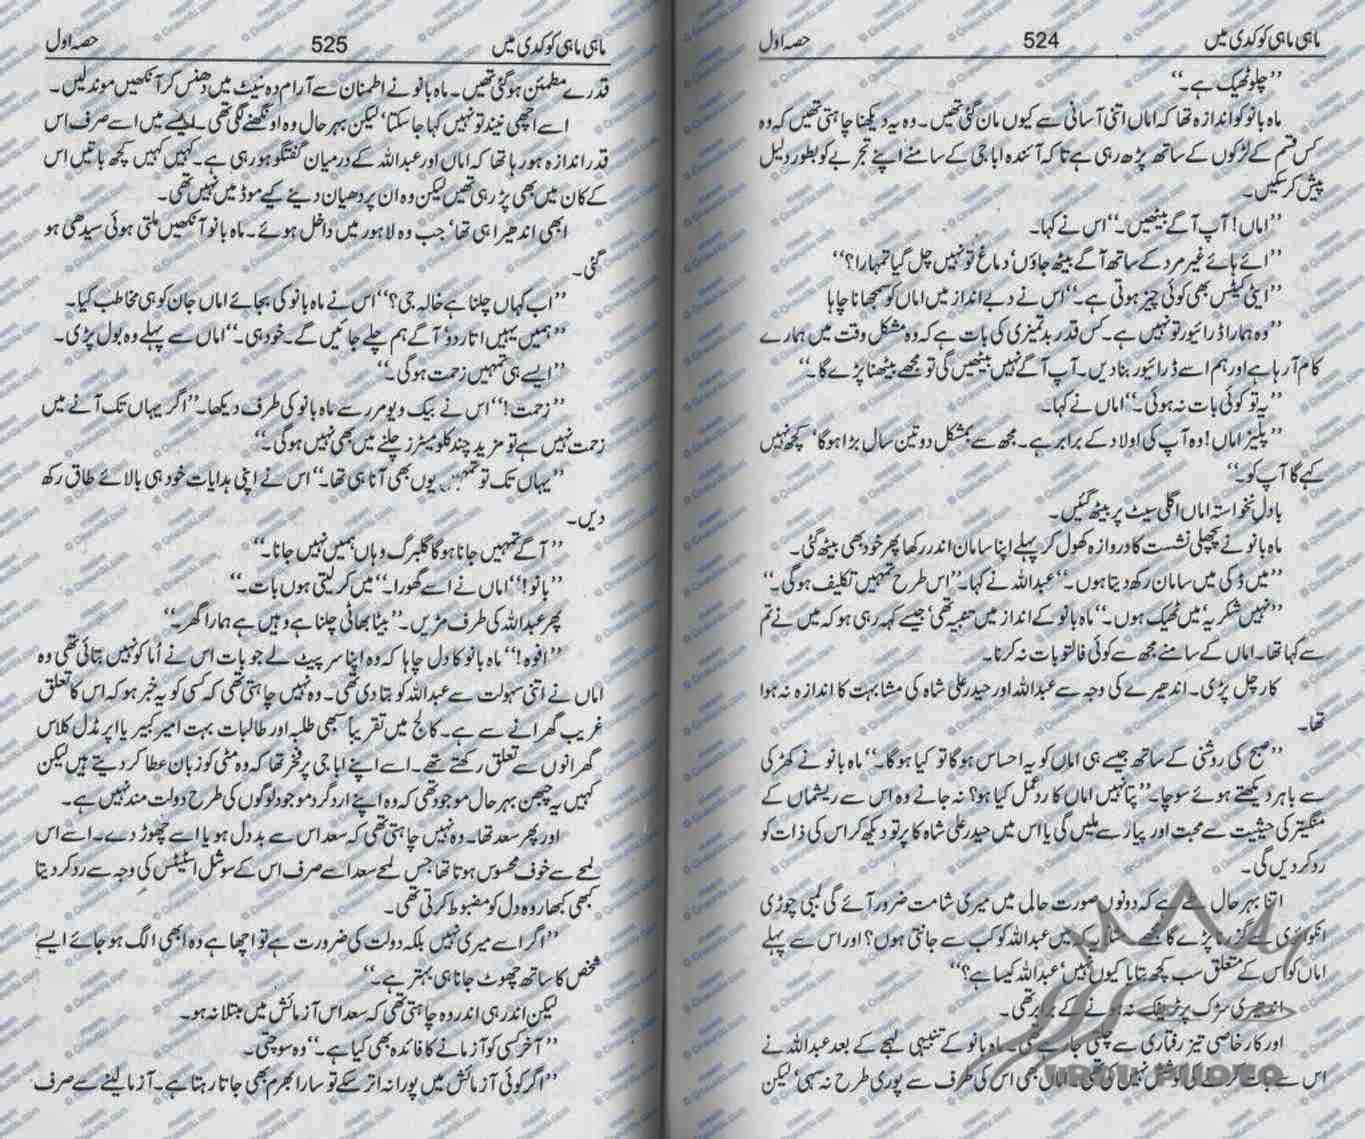 ماہی ماہی کوکدی میں 524 حصہ اول
’’چلو ٹھیک ہے۔‘‘
ماہ بانو کو اندازہ تھا کہ اماں اتنی آسانی سے کیوں مان گئی تھیں۔ وہ یہ دیکھنا چاہتی تھیں کہ وہ
کس قسم کے لڑکوں کے ساتھ پڑھ رہی ہے تاکہ آئندہ ابا جی کے سامنے اپنے تجربے کو بطور دلیل
پیش کر سکیں۔
’’اماں! آپ آگے بیٹھیں۔‘‘ اس نے کہا۔
’’ائے ہائے غیر مرد کے ساتھ آگے بیٹھ جاؤں‘ دماغ تو نہیں چل گیا تمہارا؟‘‘
’’ایٹی کیٹس بھی کوئی چیز ہوتی ہے۔‘‘ اس نے دبے انداز میں اماں کو سمجھانا چاہا
’’وہ ہمارا ڈرائیور تو نہیں ہے۔ کس قدر بدتمیزی کی بات ہے کہ وہ مشکل وقت میں ہمارے
کام آ رہا ہے اور ہم اسے ڈرائیور بنا دیں۔ آپ آگے نہیں بیٹھیں گی تو مجھے بیٹھنا پڑے گا۔‘‘
’’یہ تو کوئی بات نہ ہوئی۔‘‘ اماں نے کہا۔
’’پلیز اماں! وہ آپ کی اولاد کے برابر ہے۔ مجھ سے بمشکل دو تین سال بڑا ہوگا‘ کچھ نہیں
کہے گا آپ کو۔‘‘
بادل نخواستہ اماں اگلی سیٹ پر بیٹھ گئیں۔
ماہ بانو نے پچھلی نشست کا دروازہ کھول کر پہلے اپنا سامان اندر رکھا پھر خود بھی بیٹھ گئی۔
’’میں ڈگی میں سامان رکھ دیتا ہوں۔‘‘ عبداللہ نے کہا۔ ’’اس طرح تمہیں تکلیف ہوگی۔‘‘
’’نہیں شکریہ‘ میں ٹھیک ہوں۔‘‘ ماہ بانو کے انداز میں تنبیہ تھی‘ جیسے کہہ رہی ہو کہ میں نے تم
سے کہا تھا۔ اماں کے سامنے مجھ سے کوئی فالتو بات نہ کرنا۔
کار چل پڑی۔ اندھیرے کی وجہ سے عبداللہ اور حیدر علی شاہ کی مشابہت کا اندازہ نہ ہوا
تھا۔
’’صبح کی روشنی کے ساتھ جیسے ہی اماں کو یہ احساس ہوگا تو کیا ہوگا۔‘‘ ماہ بانو نے کھڑکی
سے باہر دیکھتے ہوئے سوچا۔ ’’پتا نہیں اماں کا ردعمل کیا ہو؟ نہ جانے وہ اس سے ریشماں کے
منگیتر کی حیثیت سے محبت اور پیار سے ملیں گی یا اس میں حیدر علی شاہ کا پرتو دیکھ کر اس کی ذات کو
رد کر دیں گی۔
اتنا بہرحال طے ہے کہ دونوں صورت حالی میں میری شامت ضرور آئے گی لمبی چوڑی
انکوائری سے گزرنا پڑے گا مجھے مثلاً کہ میں عبداللہ کو کب سے جانتی ہوں؟ اور اس سے پہلے
اماں کو اس کے متعلق سب کچھ بتایا کیوں نہیں‘ عبداللہ کیسا ہے؟‘‘
اندھیری سڑک پر ٹریفک نہ ہونے کے برابر تھی۔
اور کار خاصی تیز رفتاری سے چلتی جا رہی تھی۔ ماہ بانو کے تنبیہی لہجے کے بعد عبداللہ نے
اس سے بات کرنے کی کوشش نہیں کی تھی۔ اماں بھی اس کی طرف سے پوری طرح نہ سہی‘ لیکن
ماہی ماہی کوکدی میں 525 حصہ اول
قدرے مطمئن ہوگئی تھیں۔ ماہ بانو نے اطمنان سے آرام دہ سیٹ میں دھنس کر آنکھیں موند لیں۔
اسے اچھی نیند تو نہیں کہا جا سکتا‘ لیکن بہرحال وہ اونگھنے لگی تھی۔ ایسے میں اسے صرف اس
قدر اندازہ ہو رہا تھا کہ اماں اور عبداللہ کے درمیان گفتگو ہو رہی ہے۔ کہیں کہیں کچھ باتیں اس
کے کان میں بھی پڑ رہی تھیں لیکن وہ ان پر دھیان دینے کیے موڈ میں نہیں تھی۔
ابھی اندھیرا ہی تھا‘ جب وہ لاہور میں داخل ہوئے۔ ماہ بانو آنکھیں ملتی ہوئی سیدھی ہو
گئی۔
’’اب کہاں چلنا ہے خالہ جی؟‘‘ اس نے ماہ بانو کی بجائے اماں جان کو ہی مخاطب کیا۔
’’ہمیں یہیں اتار دو‘ آگے ہم چلے جائیں گے۔ خود ہی۔‘‘ اماں سے پہلے وہ بول پڑی۔
’’ایسے ہی تمہیں زحمت ہوگی۔‘‘
’’زحمت!‘‘ اس نے بیک ویو مرر سے ماہ بانو کی طرف دیکھا۔ ’’اگر یہاں تک آنے میں
زحمت نہیں ہے تو مزید چند کلومیٹرز چلنے میں بھی نہیں ہوگی۔‘‘
’’یہاں تک تو تمہیں یوں بھی آنا ہی تھا۔‘‘ اس نے اپنی ہدایات خود ہی بالائے طاق رکھ
دیں۔
’’آگے تمہیں جانا ہوگا گلبرگ وہاں ہمیں نہیں جانا۔‘‘
’’بانو!‘‘ اماں نے اسے گھورا۔ ’’میں کر لیتی ہوں بات۔‘‘
پھر عبداللہ کی طرف مڑیں۔ ’’بیٹا بھاٹی چلنا ہے وہیں ہے ہمارا گھر۔‘‘
’’افوہ!‘‘ ماہ بانو کا دل چاہا کہ وہ اپنا سر پیٹ لے جو بات اس نے اُما کو نہیں بتائی تھی وہ
اماں نے اتنی سہولت سے عبداللہ کو بتا دی تھی۔ وہ نہیں چاہتی تھی کہ کسی کو یہ خبر ہو کہ اس کا تعلق
غریب گھرانے سے ہے۔ کالج میں تقریباً سبھی طلبہ اور طالبات بہت امیر کبیر یا اپر مڈل کلاس
گھرانوں سے تعلق رکھتے تھے۔ اسے اپنے ابا جی پر فخر تھا کہ وہ مٹی کو زبان عطا کر دیتے ہیں لیکن
کہیں یہ چبھن بہرحال موجود تھی کہ وہ اپنے اردگرد موجود لوگوں کی طرح دولت مند نہیں ہے۔
اور پھر سعد تھا۔ وہ نہیں چاہتی تھی کہ سعد اس سے بددل ہو یا اسے چھوڑ دے۔ اسے اس
لمحے سے خوف محسوس ہوتا تھا جس لمحے سعد اسے صرف اس کے سوشل اسٹیٹس کی وجہ سے رد کر دیتا
کبھی کبھار وہ دل کو مضبوط کرتی تھی۔
’’اگر اسے میری نہیں بلکہ دولت کی ضرورت ہے تو اچھا ہے وہ ابھی الگ ہو جائے ایسے
شخص کا ساتھ چھوٹ جانا ہی بہتر ہے۔‘‘
لیکن اندر ہی اندر وہ چاہتی تھی کہ سعد اس آزمائش میں مبتلا نہ ہو۔
’’آخر کسی کو آزمانے کا فائدہ بھی کیا ہے۔‘‘ وہ سوچتی۔
’’اگر کوئی آزمائش میں پورا نہ اتر سکے تو سارا بھرم بھی جاتا رہتا ہے۔ آزما لینے سے صرف
URDU PHOTO